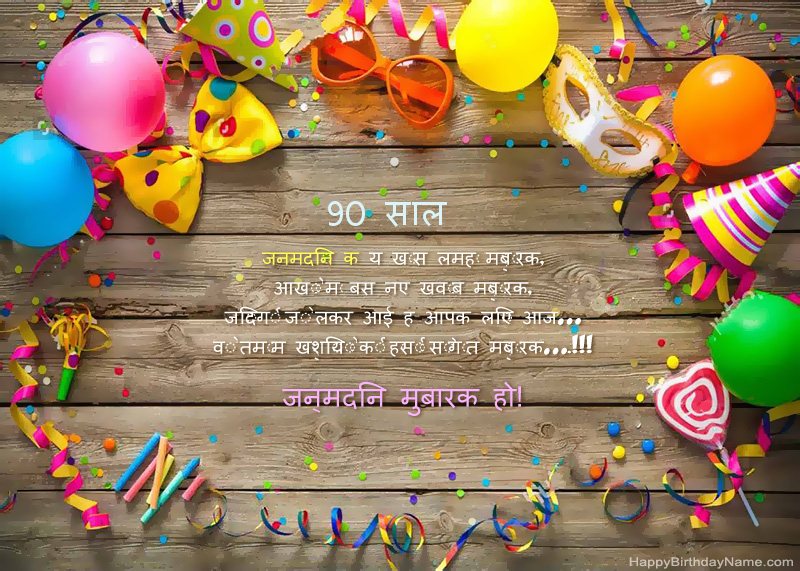 90 साल
जनमदनि क य खास लमह मबारक,
आखो म बस नए खवाब मबारक,
जदिगी जो लेकर आई ह आपक लएि आज...
वो तमाम खशयिो की हसी सौगात मबारक...!!!
जन्मदनि मुबारक हो!
HappyBirthdayName.com